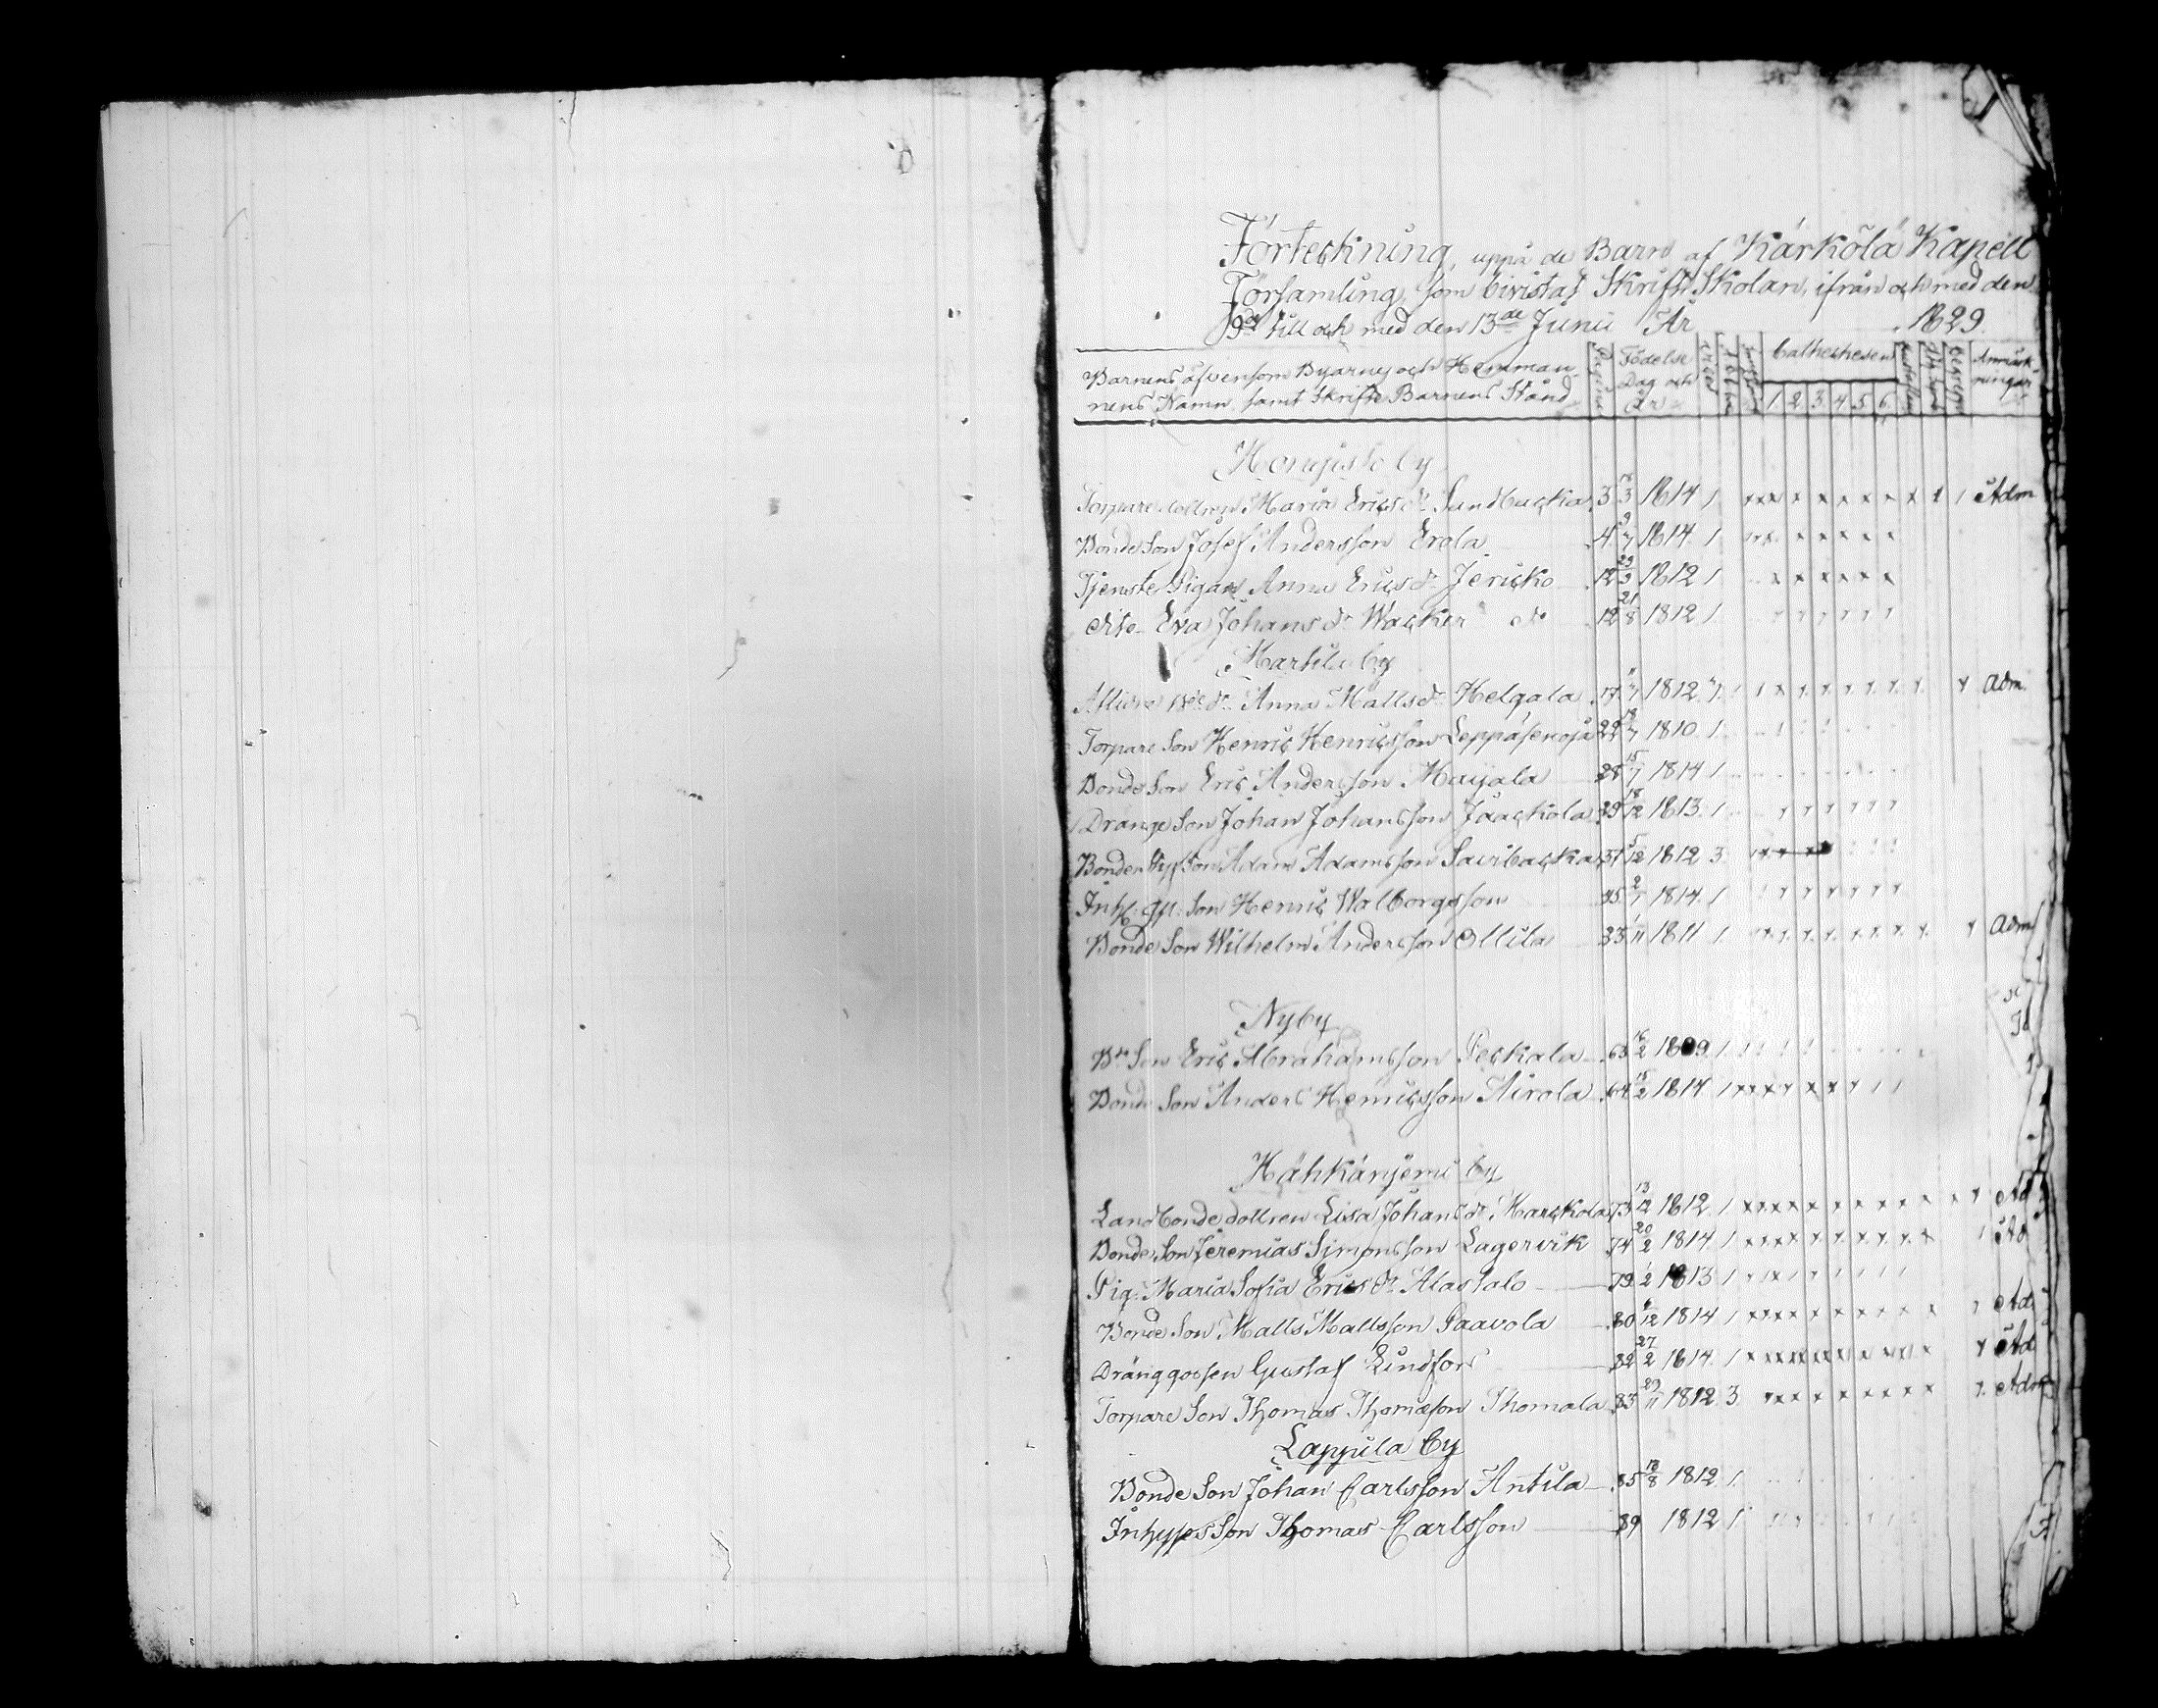 Förteckning, uppå de Barn af Kärkölä Kapell
Församling, som bivistat Skrift Skolan, ifrån och med den
9de till och med den 13de Junii År 1829.
Barnens äfvensom Byarnes och Hemman-
nens Namn, samt Skrifte Barnens Stånd
Födelse Dag och År
Cathechesen
1 2 3 4 5 6
Anmärkningar
by
Torpare Maria Ericsdr Sandbacka 3 3 1814 1 Adm
Bonde Son Josef Andersson Erola 4 9/7 1814 1
Tjenste Pigan Anna Ericsdr Jericko 12 23/9 1812 1
dito Eva Johansdr Wacker do 12 21/8 1812 1
Martila by
Anna Mattsdr Helgala 17 1812 Adm.
Torpare Son Henric Henricsson Leppäsenoja 22 1810 1
Bonde Son Eric Andersson Maijala 28 15/7 1814 1
Dränge Son Johan Johansson Jaackola 29 18/12 1813 1
Bonde Son Adam Adamsson Savibacka 31 5/12 1812 3
Inh. Son Henric Walborgsson 2/7 1814 1
Bonde Son Wilhelm Andersson Ollila 33 1/11 1811 1 Adm
Nyby
Bde Son Eric Abrahamsson Peckala 63 16/2 1809 1
Bonde Son Anders Henricsson Airola 64 15/2 1814 1
Hähkänjemi by
Landbonde dottren Lisa Johansdr Marckola 73 13/12 1812 1 Ad
Bonde Son Jeremias Simonsson Lagervik 74 20/2 1814 1 Ad
Pig. Maria Sofia Ericsdr Alastalo 79 1/2 1813 1
Bonde Son Matts Mattsson Paavola 80 12 1814 1 Ad
Dränggossen Gustaf Lindfors 82 27/2 1814 1 Ad
Torpare Son Thomas Thomasson Thomala 83 29/11 1812 3 Adm
Lappila by
Bonde Son Johan Carlsson Antila 85 18/8 1812 1
Inhyses Son Thomas Carlsson 89 1812 1